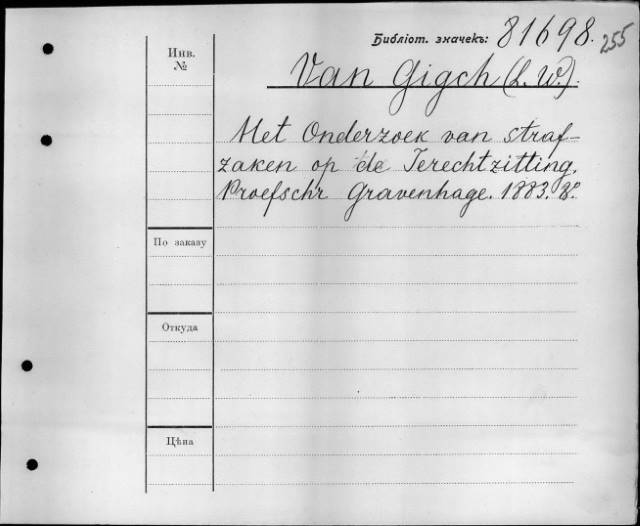 Библіот. значекъ: 81698. 255
Инв.
№
Van Gigch (L. W.).
Het Onderzoek van straf-
zaken op de Terechtzitting.
Proefschr Gravenhage. 1883. 8º.
По заказу
Откуда
Цѣна